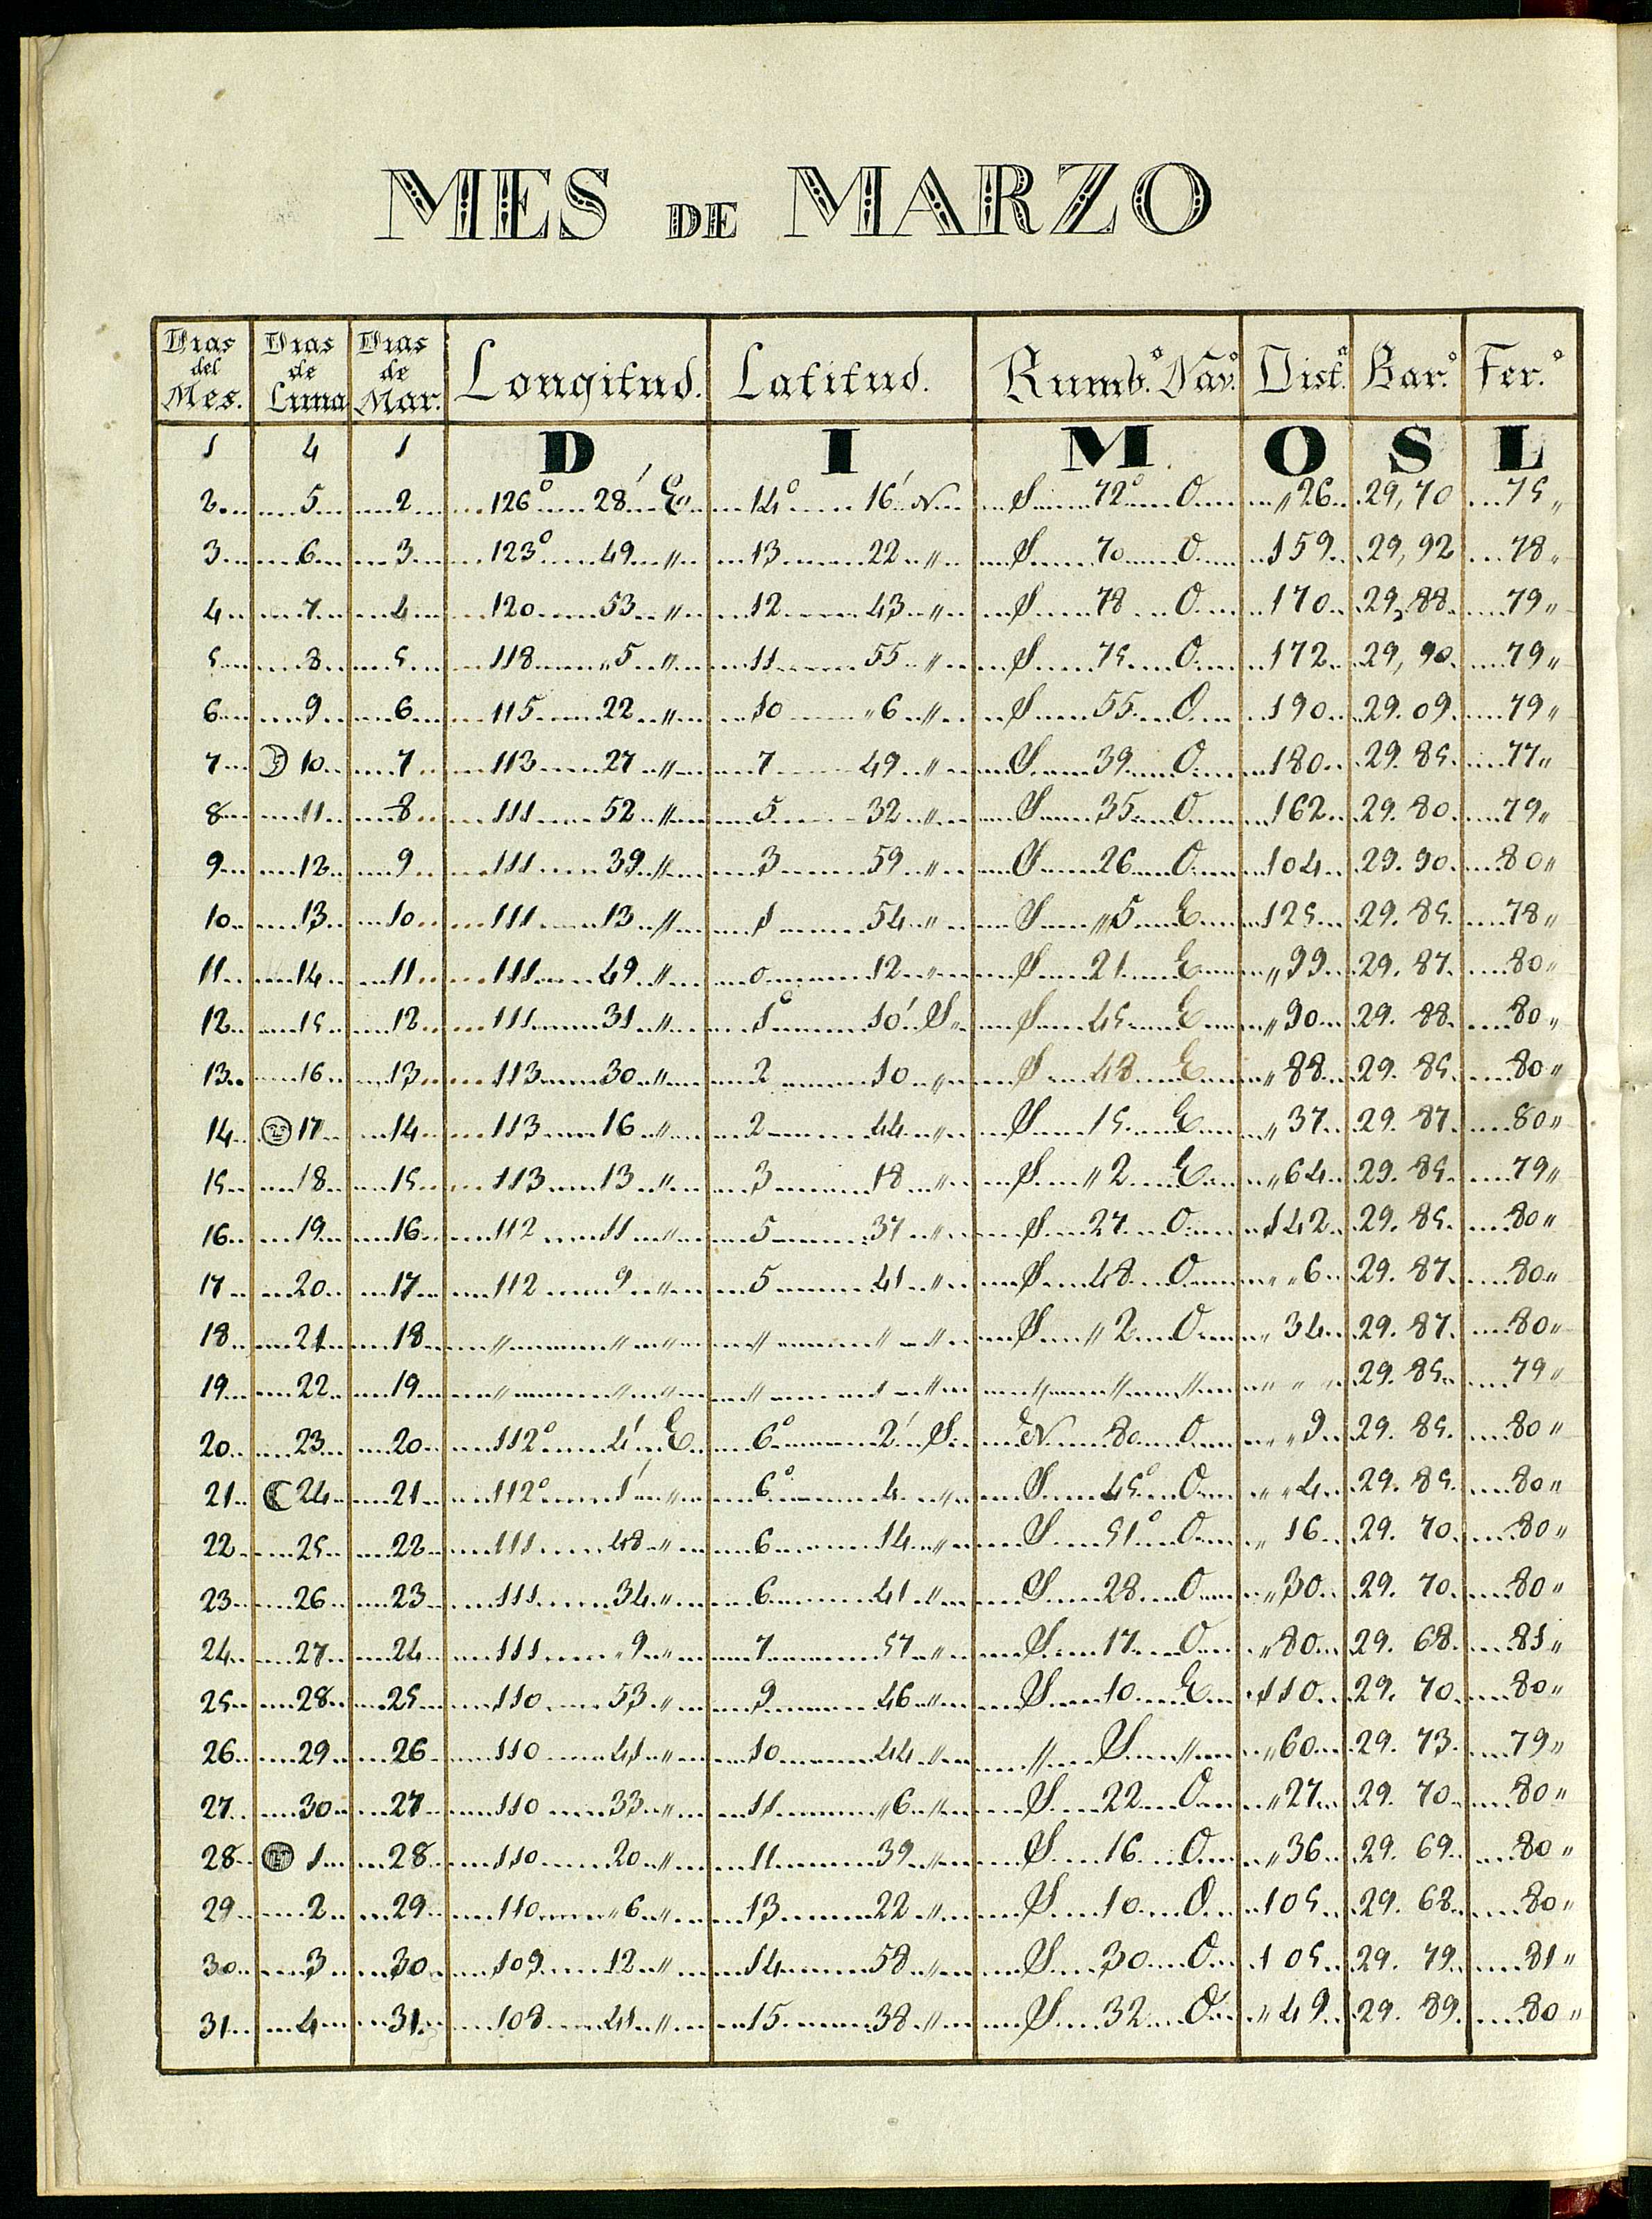 MES DE MARZO
Dias del Mes. Dias de Luna Dias de Mar. Longitud. Latitud. Rumb.º Nav.º Dist.ª Bar.º Ter.º
1 4 1 D I M O S L
2 5 2 126º 28' E. 14º 16' N S 72º O 26 29,70 75
3 6 3 123º 49 " 13 22 " S 70 O 159 29,92 78
4 7 4 120 53 " 12 43 " S 78 O 170 29,88 79
5 8 5 118 5 " 11 55 " S 75 O 172 29,90 79
6 9 6 115 22 " 10 6 " S 55 O 190 29.09 79
7 10 7 113 27 " 7 49 " S 39 O 180 29.85 77
8 11 8 111 52 " 5 32 " S 35 O 162 29.80 79
9 12 9 111 39 " 3 59 " S 26 O 104 29.90 80
10 13 10 111 13 " 1 54 " S 5 E 125 29.85 78
11 14 11 111 49 " 0 12 " S 21 E 99 29.87 80
12 15 12 111 31 " 1º 10' S S 45 E 90 29.88 80
13 16 13 113 30 " 2 10 " S 48 E 88 29.85 80
14 17 14 113 16 " 2 44 " S 15 E 37 29.87 80
15 18 15 113 13 " 3 18 " S 2 E 64 29.85 79
16 19 16 112 11 " 5 37 " S 27 O 142 29.85 80
17 20 17 112 9 " 5 41 " S 48 O 6 29.87 80
18 21 18 " " " " " " S 2 O 34 29.87 80
19 22 19 " " " " " " " " " " 29.85 79
20 23 20 112º 4' E 6º 2' S N 80 O 9 29.85 80
21 24 21 112º 1' " 6º 4 " S 45º O 4 29.85 80
22 25 22 111 48 " 6 14 " S 51º O 16 29.70 80
23 26 23 111 34 " 6 41 " S 28 O 30 29.70 80
24 27 24 111 9 " 7 57 " S 17 O 80 29.68 81
25 28 25 110 53 " 9 46 " S 10 E 110 29.70 80
26 29 26 110 41 " 10 44 " " S " 60 29.73 79
27 30 27 110 33 " 11 6 " S 22 O 27 29.70 80
28 1 28 110 20 " 11 39 " S 16 O 36 29.69 80
29 2 29 110 6 " 13 22 " S 10 O 105 29.68 80
30 3 30 109 12 " 14 58 " S 30 O 105 29.79 81
31 4 31 108 41 " 15 38 " S 32 O 49 29.89 80